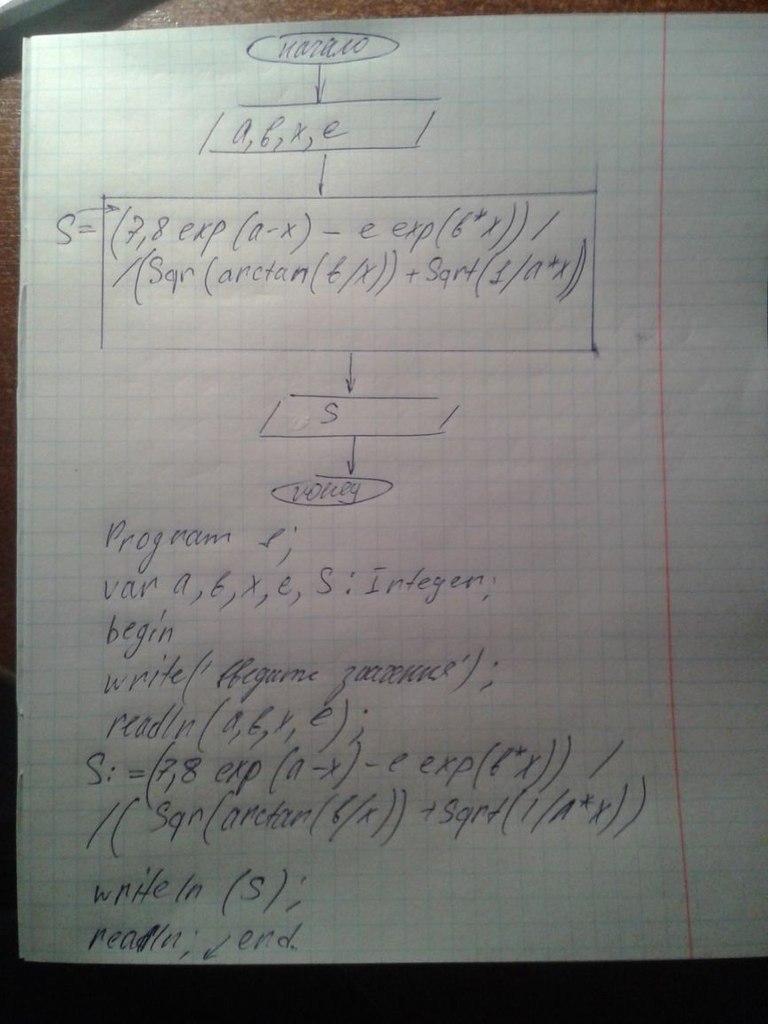 начало
/ a, b, x, e /
S= (7,8 exp (a-x) - e exp(b*x)) /
/(Sqr(arctan(b/x)) + Sqrt(1/a*x))
/ S /
конец
Program s;
var a, b, x, e, S: Integer;
begin
write('введите значения');
readln(a,b,x,e);
S:=(7,8 exp(a-x)-e exp(b*x)) /
/(Sqr(arctan(b/x)) + Sqrt(1/a*x))
writeln (S);
readln; end.